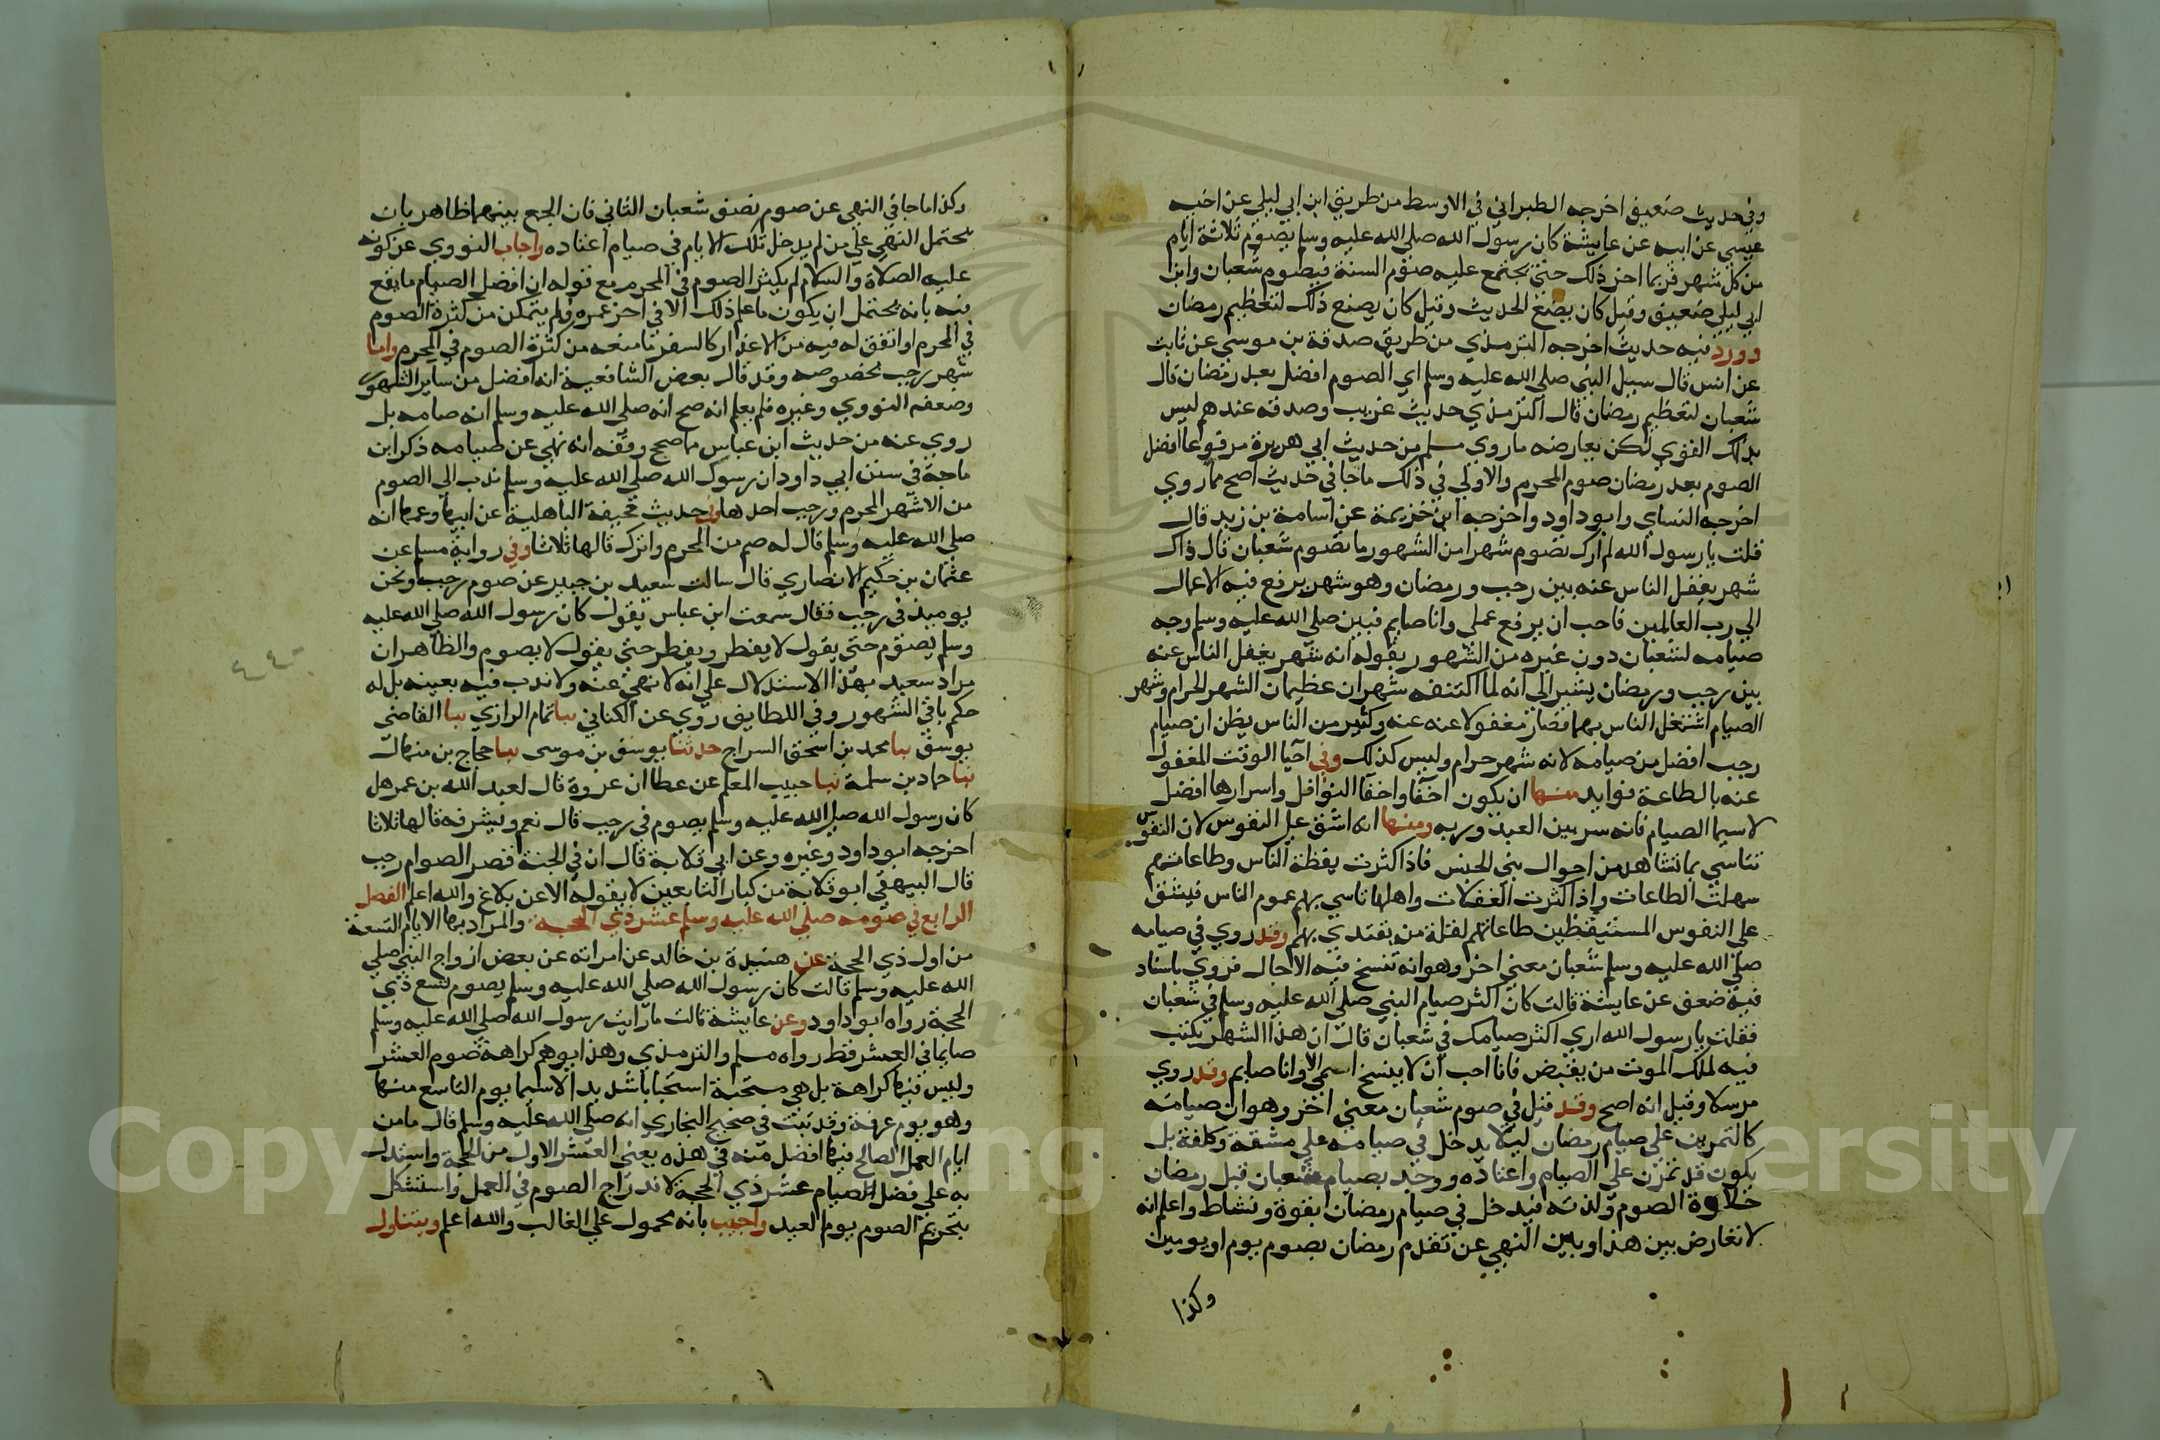 وفي حديث ضعيف اخرجه الطبراني في الاوسط من طريق ابن ابي ليلي عن اخيه
عيسي عن ابيه عن عايشة كان رسول الله صلي الله عليه وسلم يصوم ثلاثة ايام
من كل شهر فربما اخر ذلك حتي يجتمع عليه صوم السنة فيصوم شعبان وابن
ابي ليلي ضعيف وقيل كان يضع الحديث وقيل كان يصنع ذلك لتعظيم رمضان
وورد فيه حديث اخرجه الترمذي من طريق صدقة بن موسي عن ثابت
عن انس قال سيل النبي صلي الله عليه وسلم اي الصوم افضل بعد رمضان قال
شعبان لتعظيم رمضان قال الترمذي حديث غريب وصدقه عندهم ليس
بذلك القوي لكن يعارضه ماروي مسلم من حديث ابي هريرة مرفوعا افضل
الصوم بعد رمضان صوم المحرم والاولي في ذلك ماجا في حديث اصح مماروي
اخرجه النساي وابو داود واخرجه ابن خزيمة عن اسامة بن زيد قال
قلت يا رسول الله لم ارك تصوم شهرا من الشهور ما تصوم شعبان قال ذاك
شهر يغفل الناس عنه بين رجب ورمضان وهو شهر يرفع فيه الاعمال
الي رب العالمين فاحب ان يرفع عملي وانا صايم فبين صلي الله عليه وسلم وجه
صيامه لشعبان دون غيره من الشهور بقوله انه شهر يغفل الناس عنه
بين رجب ورمضان يشير الي انه لما اكتنفه شهران عظيمان الشهر الحرام وشهر
الصيام اشتغل الناس بهما فصار مغفولا عنه عنه وكثير من الناس يظن ان صيام
رجب افضل من صيامه لانه شهر حرام وليس كذلك وفي احيا الوقت المغفول
عنه بالطاعة فوايد منها ان يكون اخفا واخفا النوافل واسرارها افضل
لاسيما الصيام فانه سر بين العبد وربه ومنها انه اشق علي النفوس لان النفوس
تتاسي بما تشاهد من احوال بني الجنس فاذا كثرت يقظة الناس وطاعاتهم
سهلت الطاعات واذا كثرت الغفلات واهلها تاسي بهم عموم الناس فيشق
علي النفوس المستيقظين طاعاتهم لقلة من يقتدي بهم وقد روي في صيامه
صلي الله عليه وسلم شعبان معني اخر وهو انه تنسخ فيه الاجال فروي باسناد
فيه ضعف عن عايشة قالت كان اكثر صيام النبي صلي الله عليه وسلم في شعبان
فقلت يا رسول الله اري اكثر صيامك في شعبان قال ان هذا الشهر يكتب
فيه لملك الموت من يقبض فانا احب ان لا ينسخ اسمي الا وانا صايم وقد روي
مرسلا وقيل انه اصح وقد قيل في صوم شعبان معني اخر وهو ان صيامه
كالتمرين علي صيام رمضان ليلا يدخل في صيامه علي مشقة وكلفة بل
يكون قد تمرن علي الصيام واعتاده ووجد بصيام شعبان قبل رمضان
حلاوة الصوم ولذته فيدخل في صيام رمضان بقوة ونشاط واعلم انه
لا تعارض بين هذا وبين النهي عن تقدم رمضان بصوم يوم او يومين
وكذا
وكذا ماجا في النهي عن صوم نصف شعبان الثاني فان الجمع بينهما ظاهر بان
يحتمل النهي علي من لم يدخل تلك الايام في صيام اعتاده واجاب النووي عن كونه
عليه الصلاة والسلام لم يكثر الصوم في المحرم مع قوله ان افضل الصيام ما يقع
فيه بانه يحتمل ان يكون ما علم ذلك الا في اخر عمره فلم يتمكن من كثرة الصوم
في المحرم او اتفق له فيه من الاعذار كالسفر ما منعه من كثرة الصوم في المحرم واما
شهر رجب بخصوصه وقد قال بعض الشافعية انه افضل من ساير الشهور
وضعفه النووي وغيره فلم يعلم انه صح انه صلي الله عليه وسلم انه صامه بل
روي عنه من حديث ابن عباس ما صح وقفه انه نهي عن صيامه ذكر ابن
ماجة في سنن ابي داود ان رسول الله صلي الله عليه وسلم ندب الي الصوم
من الاشهر الحرم ورجب احدها وفي حديث مجيبة الباهلية عن ابيها وعمها انه
صلي الله عليه وسلم قال له صم من المحرم واترك قالها ثلاثا وفي رواية مسلم عن
عثمان بن حكيم الانصاري قال سالت سعيد بن جبير عن صوم رجب ونحن
يوميذ في رجب فقال سمعت ابن عباس يقول كان رسول الله صلي الله عليه
وسلم يصوم حتي يقول لا يفطر ويفطر حتي يقول لا يصوم والظاهر ان
مراد سعيد بهذا الاستدلال علي انه لا نهي عنه ولا ندب فيه بعينه بل له
حكم باقي الشهور وفي اللطايف روي عن الكتاني نبا تمام الرازي نبا القاضي
يوسف نبا محمد بن اسحق السراج حدثنا يوسف بن موسي نبا حجاج بن منهال
نبا حماد بن سلمة نبا حبيب المعلم عن عطا ان عروة قال لعبد الله بن عمر هل
كان رسول الله صلي الله عليه وسلم يصوم في رجب قال نعم ويشرفه قالها ثلاثا
اخرجه ابو داود وغيره وعن ابي قلابة قال ان في الجنة قصر الصوام رجب
قال البيهقي ابو قلابة من كبار التابعين لا يقوله الا عن بلاغ والله اعلم الفصل
الرابع في صومه صلي الله عليه وسلم عشر ذي الحجة والمراد بها الايام التسعة
من اول ذي الحجة عن هنيدة بن خالد عن امراته عن بعض ازواج النبي صلي
الله عليه وسلم قالت كان رسول الله صلي الله عليه وسلم يصوم تسع ذي
الحجة رواه ابو داود وعن عايشة قالت ما رايت رسول الله صلي الله عليه وسلم
صايما في العشر قط رواه مسلم والترمذي وهذا يوهم كراهة صوم العشر
وليس فيها كراهة بل هي مستحبة استحبابا شديدا لاسيما يوم التاسع منها
وهو يوم عرفة وقد ثبت في صحيح البخاري انه صلي الله عليه وسلم قال ما من
ايام العمل الصالح فيها افضل منه في هذه يعني العشر الاول من الحجة واستدل
به علي فضل الصيام عشر ذي الحجة لاندراج الصوم في العمل واستشكل
بتحريم الصوم يوم العيد واجيب بانه محمول علي الغالب والله اعلم ويتناول